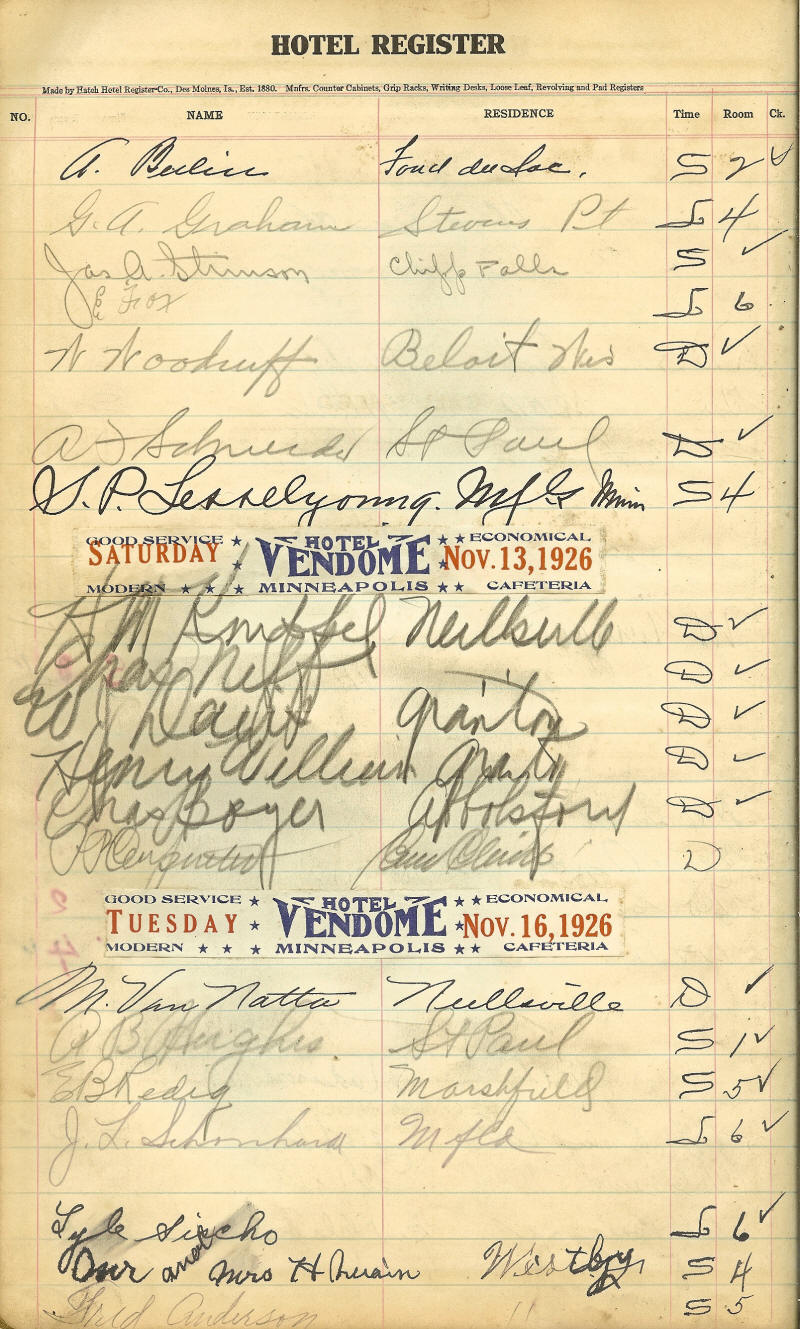 HOTEL REGISTER
Made by Hatch Hotel Register Co., Des Moines, Ia., Est. 1880. Mnfrs. Counter Cabinets, Grip Racks, Writing Desks, Loose Leaf, Revolving and Pad Registers
NO. NAME RESIDENCE Time Room Ck.
A. Fond du Lac. S 2 ✓
G. A. Graham Stevens Pt L 4
Jas A. Stimson Chipp Falls S ✓
E Fox L 6
W Woodruff Beloit Wis D ✓
A J Schneider St Paul D ✓
S. P. Lesselyoung. Mpls Minn S 4
GOOD SERVICE ★ HOTEL ★ ★ ECONOMICAL
SATURDAY VENDOME Nov. 13, 1926
MODERN ★ ★ ★ MINNEAPOLIS ★ ★ CAFETERIA
H M Neillsvill D ✓
Chas Neff D ✓
W. Davis Granton D ✓
Henry William Grant D ✓
Chas Boyer Abbotsford D ✓
Eau Claire D
GOOD SERVICE ★ HOTEL ★ ★ ECONOMICAL
TUESDAY ★ VENDOME ★ Nov. 16, 1926
MODERN ★ ★ ★ MINNEAPOLIS ★ ★ CAFETERIA
M. Van Natta Neillsville D ✓
A B Hughes. St Paul S 1 ✓
E B Redig Marshfield S 5 ✓
J. L. Schonhard Mfld L 6 ✓
Lyle L 6 ✓
Mr and Mrs H Westby S 4
Fred Anderson " S 5